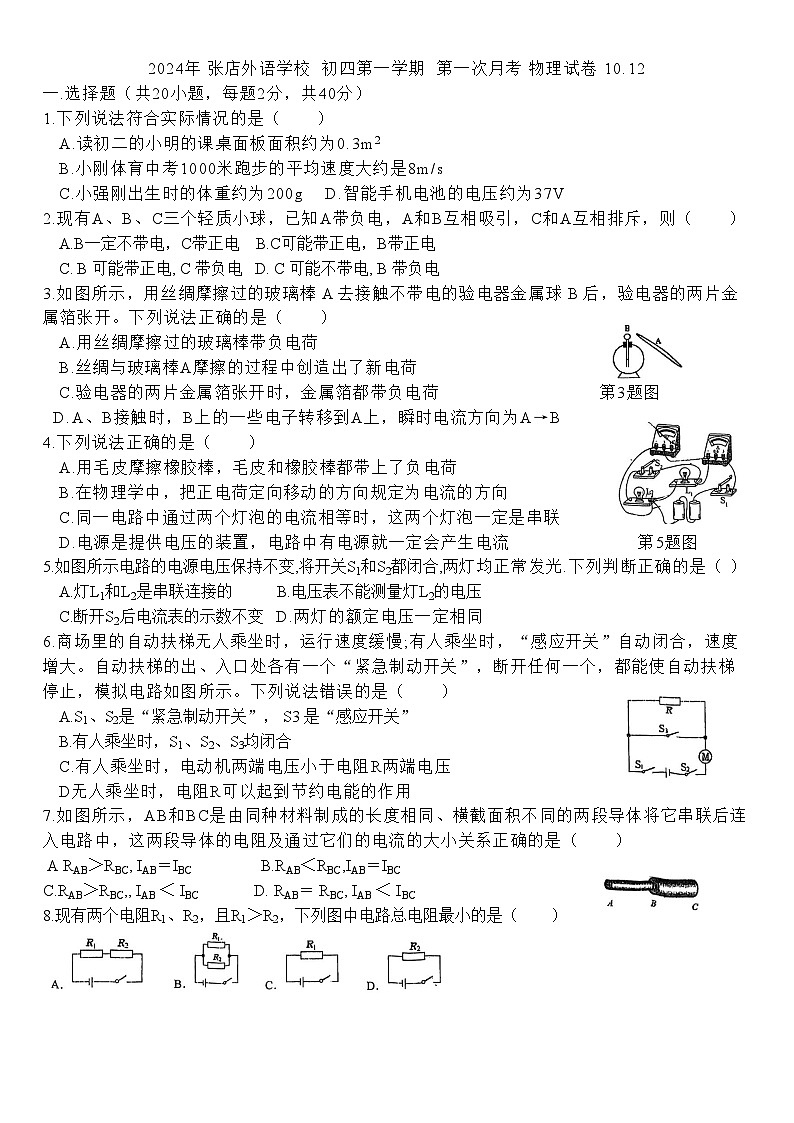 2024年 张店外语学校 初四第一学期 第一次月考 物理试卷 10.12
一.选择题（共20小题，每题2分，共40分）
1.下列说法符合实际情况的是（　　）
A.读初二的小明的课桌面板面积约为0.3m²
B.小刚体育中考1000米跑步的平均速度大约是8m/s
C.小强刚出生时的体重约为200g D.智能手机电池的电压约为37V
2.现有A、B、C三个轻质小球，已知A带负电，A和B互相吸引，C和A互相排斥，则（　　）
A.B一定不带电，C带正电 B.C可能带正电，B带正电
C. B 可能带正电, C 带负电 D. C 可能不带电, B 带负电
3.如图所示，用丝绸摩擦过的玻璃棒 A 去接触不带电的验电器金属球 B 后，验电器的两片金
属箔张开。下列说法正确的是（　　）
A.用丝绸摩擦过的玻璃棒带负电荷
B.丝绸与玻璃棒A摩擦的过程中创造出了新电荷
C.验电器的两片金属箔张开时，金属箔都带负电荷
B
A
第3题图
D.A、B接触时，B上的一些电子转移到A上，瞬时电流方向为A→B
4.下列说法正确的是（　　）
A.用毛皮摩擦橡胶棒，毛皮和橡胶棒都带上了负电荷
B.在物理学中，把正电荷定向移动的方向规定为电流的方向
C.同一电路中通过两个灯泡的电流相等时，这两个灯泡一定是串联
D.电源是提供电压的装置，电路中有电源就一定会产生电流
L₂ L₁ S₁
第5题图
5.如图所示电路的电源电压保持不变,将开关S₁和S₂都闭合,两灯均正常发光.下列判断正确的是（ ）
A.灯L₁和L₂是串联连接的 B.电压表不能测量灯L₂的电压
C.断开S₂后电流表的示数不变 D.两灯的额定电压一定相同
6.商场里的自动扶梯无人乘坐时，运行速度缓慢;有人乘坐时，“感应开关”自动闭合，速度
增大。自动扶梯的出、入口处各有一个“紧急制动开关”，断开任何一个，都能使自动扶梯
停止，模拟电路如图所示。下列说法错误的是（　　）
A.S₁、S₂是“紧急制动开关”， S3 是“感应开关”
B.有人乘坐时，S₁、S₂、S₃均闭合
C.有人乘坐时，电动机两端电压小于电阻R两端电压
D无人乘坐时，电阻R可以起到节约电能的作用
R
S₃
M
S₁ S₂
7.如图所示，AB和BC是由同种材料制成的长度相同、横截面积不同的两段导体将它串联后连
入电路中，这两段导体的电阻及通过它们的电流的大小关系正确的是（　　）
A R_AB＞R_BC, I_AB＝I_BC B.R_AB＜R_BC,I_AB＝I_BC
C.R_AB＞R_BC,, I_AB ＜ I_BC D. R_AB＝ R_BC, I_AB ＜ I_BC
A B C
8.现有两个电阻R₁、R₂，且R₁＞R₂，下列图中电路总电阻最小的是（　　）
A. R₁ R₂
B. R₁ R₂
C. R₁
D. R₂